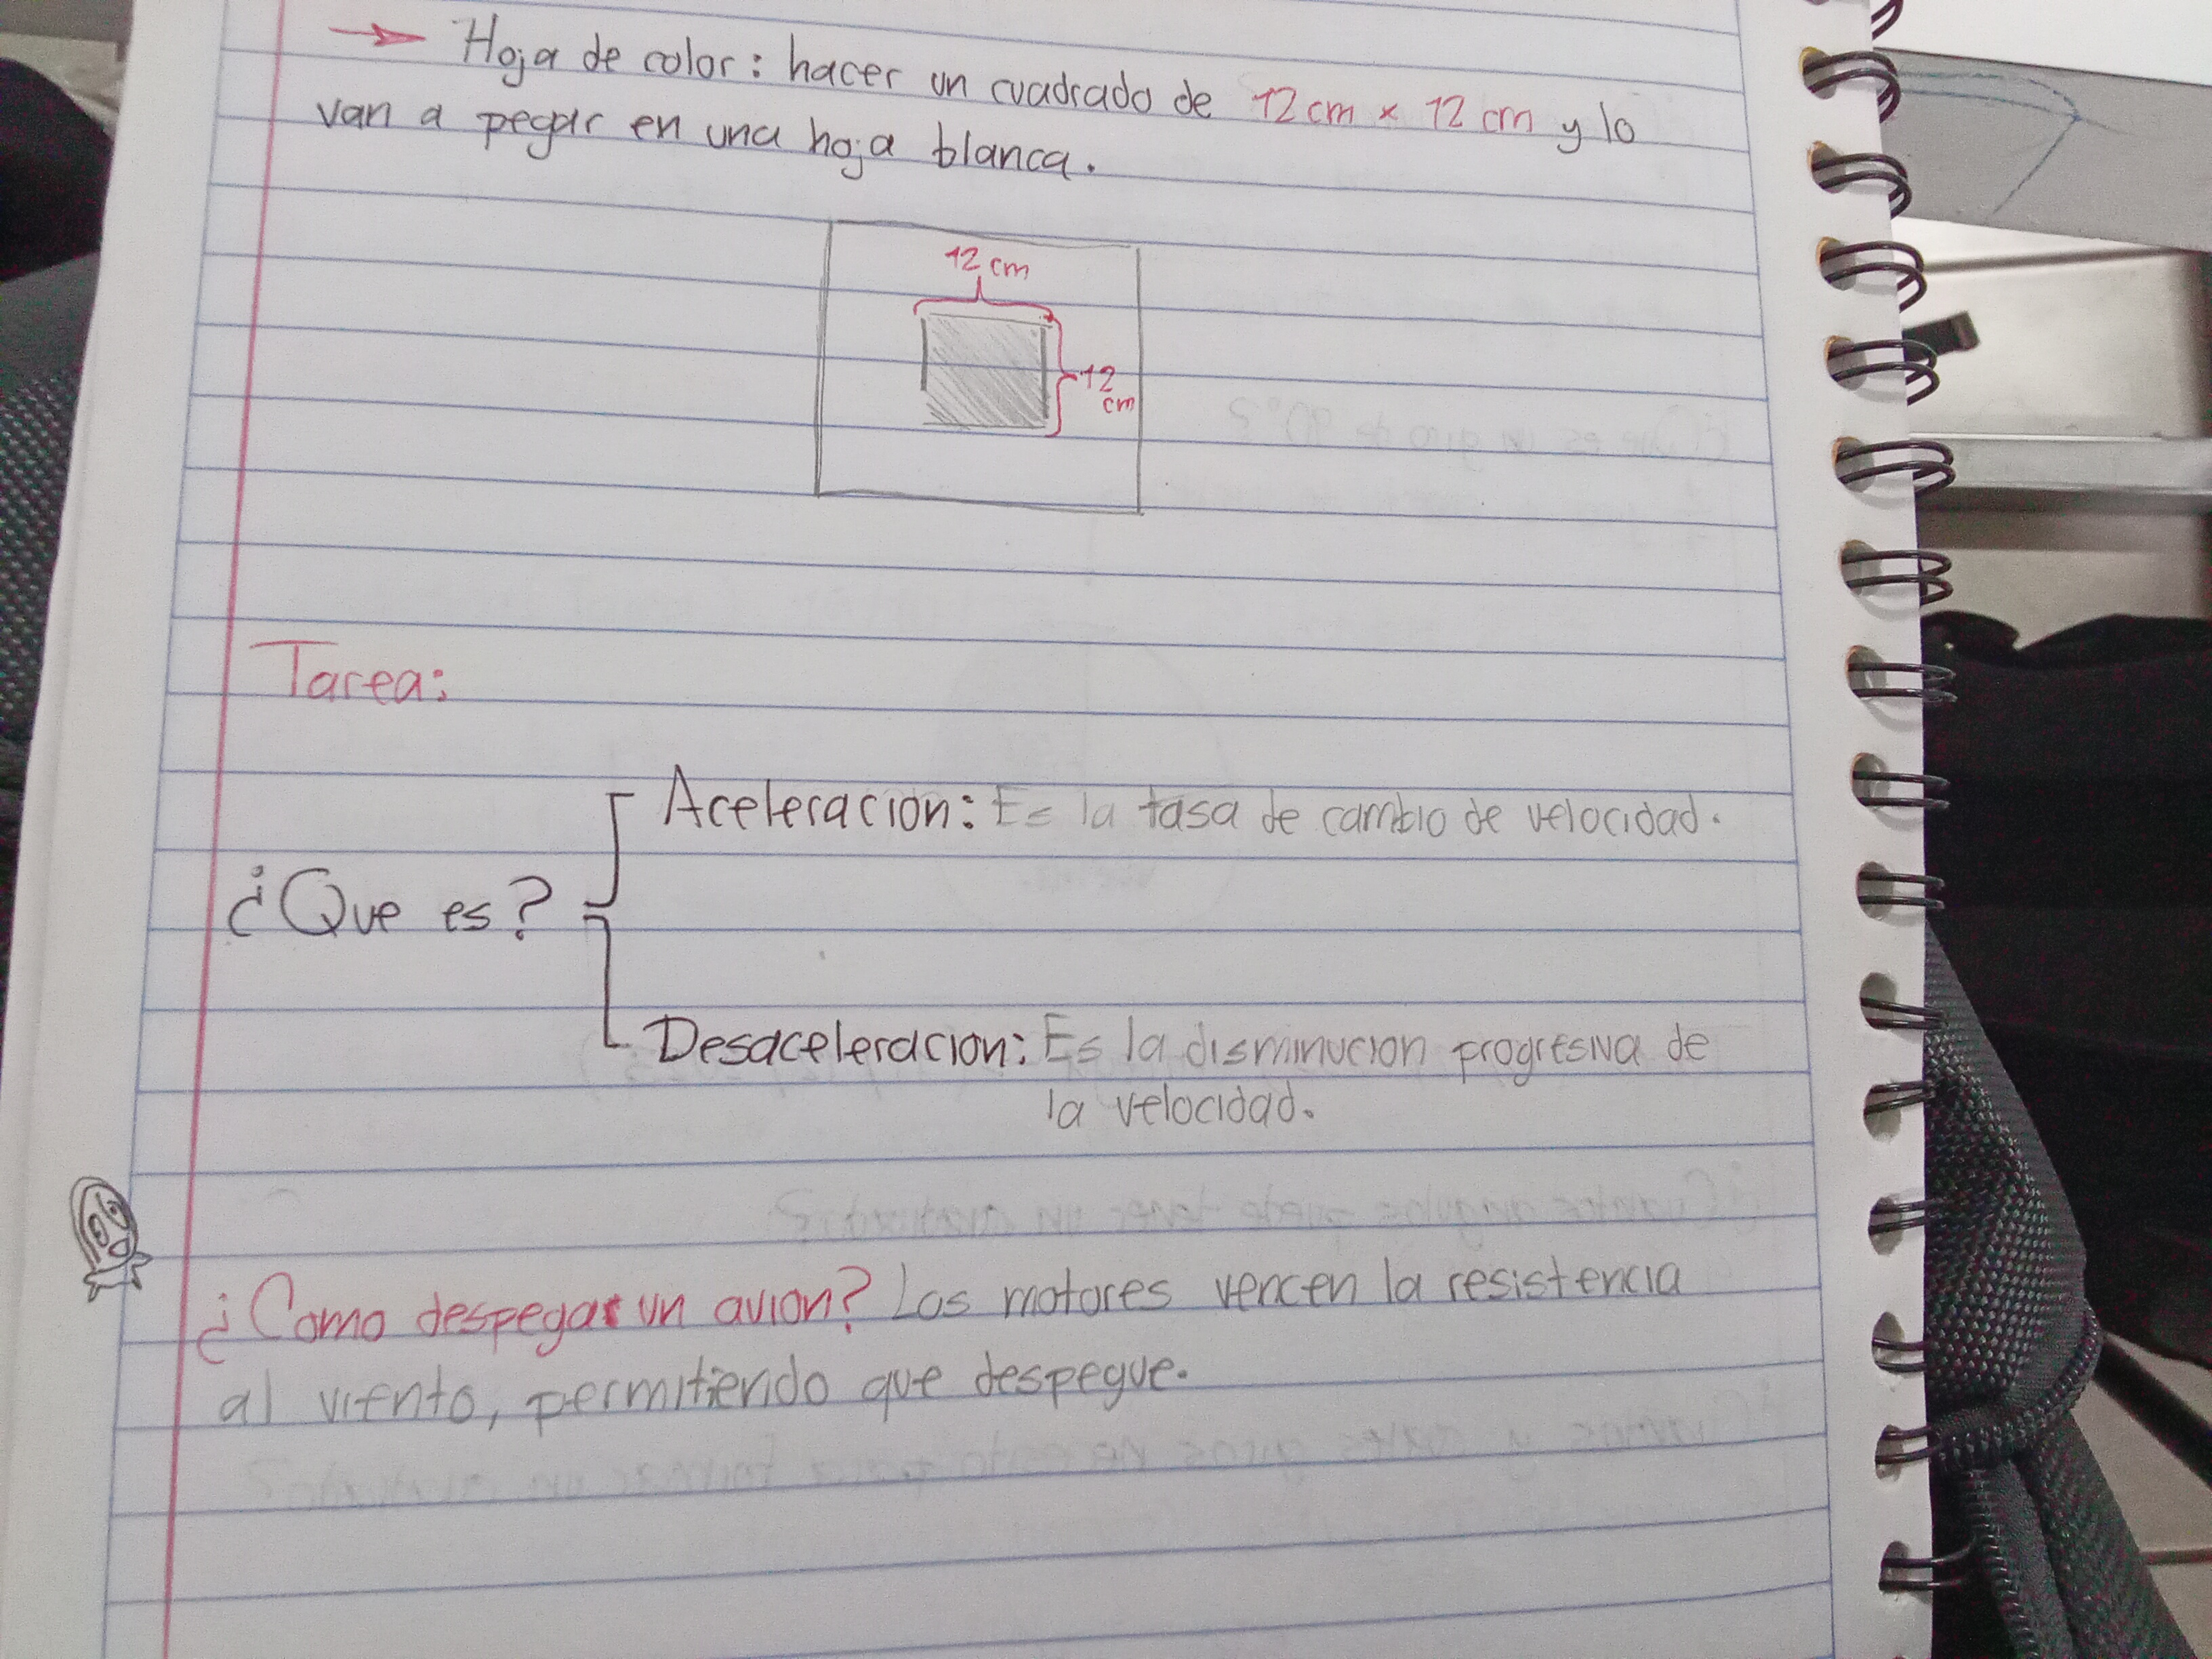 → Hoja de color: hacer un cuadrado de 12cm x 12 cm y lo
van a pegar en una hoja blanca.
12 cm
12
cm
Tarea:
Aceleracion: Es la tasa de cambio de velocidad.
¿Que es?
Desaceleracion: Es la disminucion progresiva de
la velocidad.
¿Como despegar un avion? Los motores vencen la resistencia
al viento, permitiendo que despegue.